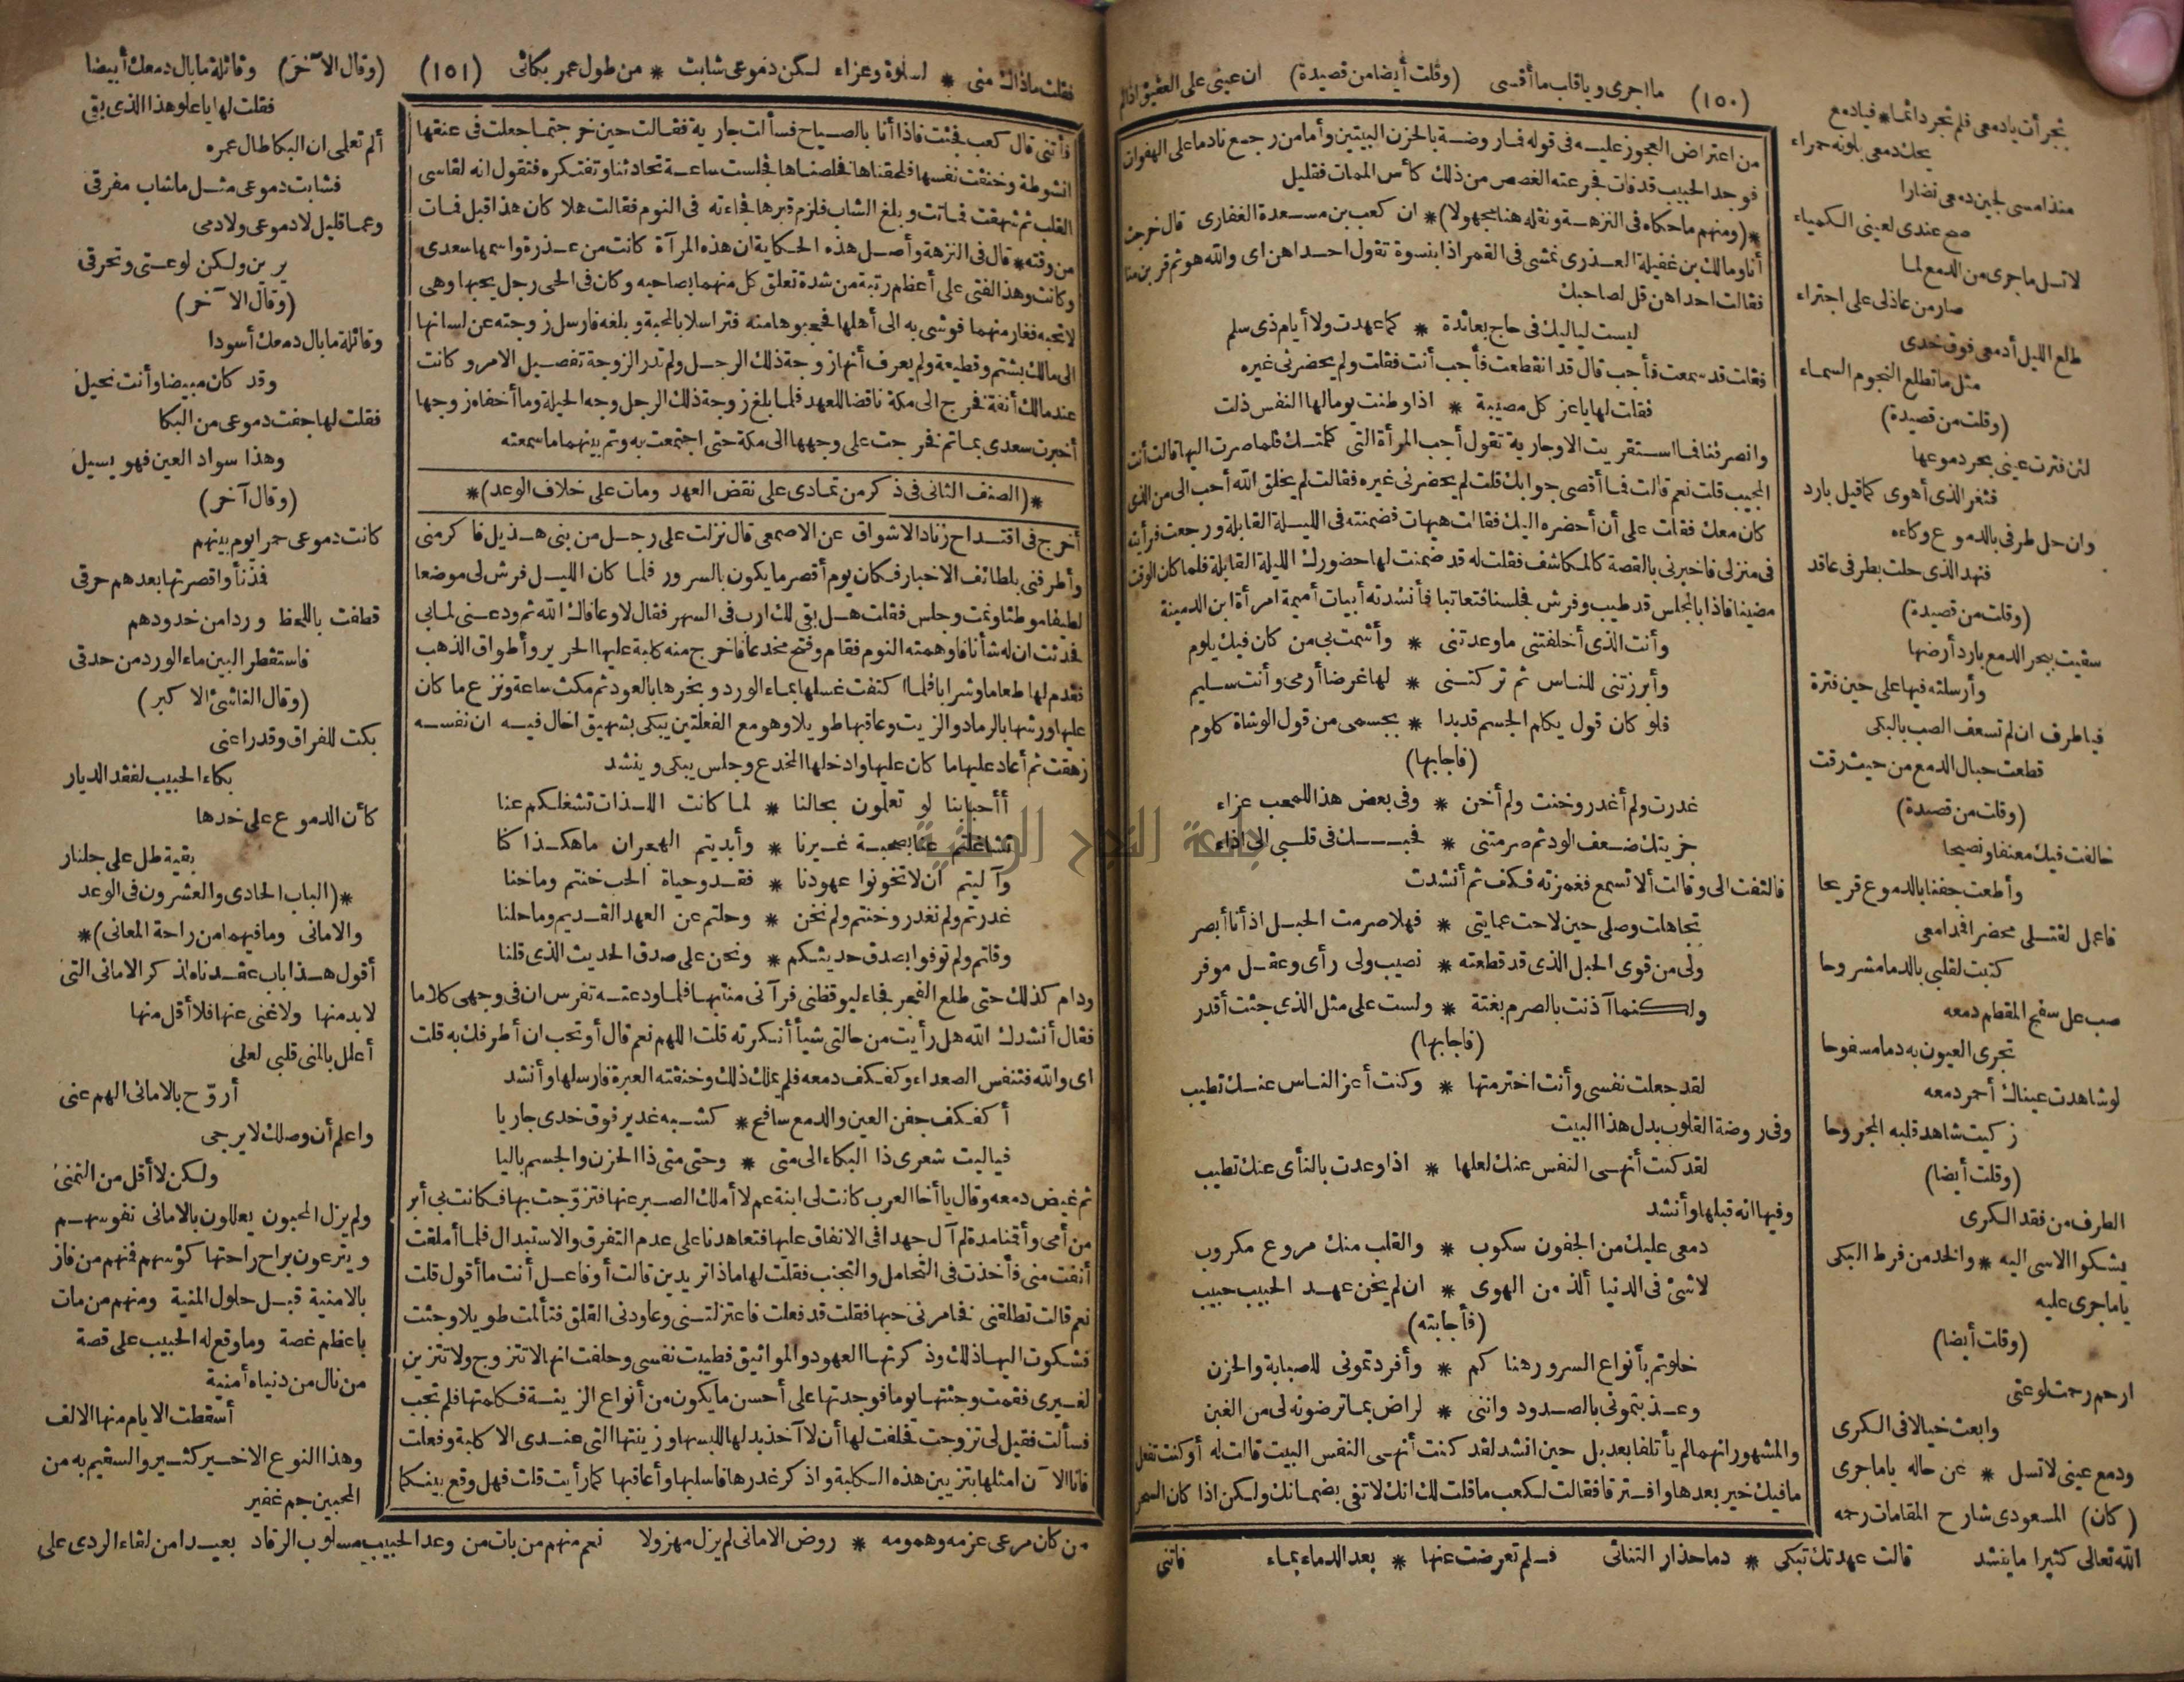 (١٥٠) ما اجرى ويا قلب ما أقسى (وقلت أيضا من قصيدة) ان عينى على العقيق اذا لم
تجرأت يا دمعى فلم تجر دائما * فيا دمع
يحك دمعى بلونه حمراء
منذ امسى لجين دمعى نضارا
صح عندى لعينى الكمياء
لا تسل ما جرى من الدمع لما
صار من عاذلى على اجتراء
طلع الليل أدمعى فوق خدى
مثل ما تطلع النجوم السماء
(وقلت من قصيدة)
لئن فترت عينى بحر دموعها
فثغر الذى أهوى كما قيل بارد
وان حل طرفى بالدموع وكاءه
فنهد الذى حلت بطرفى عاقد
(وقلت من قصيدة)
سقيت ببحر الدمع بارد أرضها
وأرسلته فيها على حين فترة
فيا طرف ان لم تسعف الصب بالبكى
قطعت حبال الدمع من حيث رقت
(وقلت من قصيدة)
خالفت فيك معنفا ونصيحا
وأطعت جفنا بالدموع قريحا
فاعمل لقتلى محضرا فمدامعى
كتبت لقلبى بالدما مشروحا
صب عل سفح المقطم دمعه
تجرى العيون به دما مسفوحا
لو شاهدت عيناك أحمر دمعه
زكيت شاهد قلبه المجروحا
(وقلت أيضا)
الطرف من فقد الكرى
يشكوا الاسى اليه * والخد من فرط البكى
ياما جرى عليه
(وقلت أيضا)
ارحم رحمت لوعتى
وابعث خيالا فى الكرى
ودمع عينى لا تسل * عن حاله ياما جرى
(كان) المسعودى شارح المقامات رحمه
من اعتراض العجوز عليه فى قوله فار وضة بالحزن البيتين وأما من رجع نادما على الهفوات
فوجد الحبيب قد فات فجرعته الغصص من ذلك كأس الممات فقليل
*(ومنهم ما حكاه فى النزهة ونقله هنا مجهولا)* ان كعب بن مسعدة الغفارى قال خرجت
أنا ومالك بن غفيلة العذرى نمشى فى القمر اذا بنسوة تقول احداهن اى والله هو ثم قربن منا
فقالت احداهن قل لصاحبك
ليست لياليك فى حاج بعائدة * كما عهدت ولا أيام ذى سلم
فقلت قد سمعت فأجب قال قد انقطعت فأجب أنت فقلت ولم يحضرنى غيره
فقلت لها ياعز كل مصيبة * اذا وطنت يوما لها النفس ذلت
وانصرفنا فما استقريت الا وجارية تقول أجب المرأة التى كلمتك فلما صرت اليها قالت أنت
المجيب قلت نعم قالت فما أقصى جوابك قلت لم يحضرنى غيره فقالت لم يخلق الله أحب الى من الذى
كان معك فقلت على أن أحضره اليك فقالت هيهات فضمنته فى الليلة القابلة ورجعت فرأيته
فى منزلى فاخبرنى بالقصة كالمكاشف فقلت له قد ضمنت لها حضورك الليلة القابلة فلما كان الوقت
مضينا فاذا بالمجلس قد طيب وفرش فجلسنا فتعاتبا فأنشدته أبيات أميمة امرأة ابن الدمينة
وأنت الذى أخلفتنى ما وعدتنى * وأشمت بى من كان فيك يلوم
وأبرزتنى للناس ثم تركتنى * لها غرضا أرمى وأنت سليم
فلو كان قول يكلم الجسم قد بدا * بجسمى من قول الوشاة كلوم
(فاجابها)
غدرت ولم أغدر وخنت ولم أخن * وفى بعض هذا للمحب عزاء
جزيتك ضعف الود ثم صرمتنى * فحبك فى قلبى الى اذاء
فالتفت الى وقالت ألا تسمع فغمزته فكف ثم أنشدت
تجاهلت وصلى حين لاحت عمايتى * فهلا صرمت الحبل اذ أنا أبصر
ولى من قوى الحبل الذى قد قطعته * نصيب ولى رأى وعقل موفر
ولكنما آذنت بالصرم بغتة * ولست على مثل الذى جئت أقدر
(فاجابها)
لقد جعلت نفسى وأنت اخترمتها * وكنت أعز الناس عنك تطيب
وفى روضة القلوب بدل هذا البيت
لقد كنت أنهى النفس عنك لعلها * اذا وعدت بالنأى عنك تطيب
وفيها انه قبلها وأنشد
دمعى عليك من الجفون سكوب * والقلب منك مروع مكروب
لا شئ فى الدنيا ألذ من الهوى * ان لم يخن عهد الحبيب حبيب
(فأجابته)
خلوتم بأنواع السرور هنا كم * وأفردتمونى للصبابة والحزن
وعذبتمونى بالصدود واننى * لراض بما ترضونه لى من الغبن
والمشهور انهما لم يأتلفا بعد بل حين انشد لقد كنت أنهى النفس البيت قالت له أو كنت تفعل
ما فيك خير بعدها وافترقا فقالت لكعب ما قلت لك انك لا تفى بضمانك ولكن اذا كان السحر
الله تعالى كثيرا ما ينشد قالت عهدتك تبكى * دما حذار التنائى فلم تعوضت عنها * بعد الدماء بماء فاتنى
فقلت ماذاك منى * لسلوة وعزاء لكن دموعى شابت * من طول عمر بكائى (١٥١) (وقال الآخر) وقائلة ما بال دمعك أبيضا
فأتنى قال كعب فجئت فاذا أنا بالصياح فسألت جارية فقالت حين خرجتما جعلت فى عنقها
انشوطة وخنقت نفسها فلحقناها فخلصناها فجلست ساعة تحادثنا وتفتكره فتقول انه لقاسى
القلب ثم شهقت فماتت وبلغ الشاب فلزم قبرها فجاءته فى النوم فقالت هلا كان هذا قبل فمات
من وقته * قال فى النزهة وأصل هذه الحكاية ان هذه المرآة كانت من عذرة واسمها سعدى
وكانت وهذا الفتى على أعظم رتبة من شدة تعلق كل منهما بصاحبه وكان فى الحى رجل يحبها وهى
لا تحبه فغار منهما فوشى به الى أهلها فحجبوها منه فتراسلا بالمحبة وبلغه فارسل زوجته عن لسانها
الى مالك بشتم وقطيعة ولم يعرف أنها زوجة ذلك الرجل ولم تدر الزوجة تفصيل الامر وكانت
عند مالك أنفة فخرج الى مكة ناقضا للعهد فلما بلغ زوجة ذلك الرجل وجه الحيلة وما أخفاه زوجها
أخبرت سعدى بما تم فخرجت على وجهها الى مكة حتى اجتمعت به وتم بينهما ما سمعته
*(الصنف الثانى فى ذكر من تمادى على نقض العهد ومات على خلاف الوعد)*
أخرج فى اقتداح زناد الاشواق عن الاصمعى قال نزلت على رجل من بنى هذيل فاكرمنى
وأطرفنى بلطائف الاخبار فكان يوم أقصر ما يكون بالسرور فلما كان الليل فرش لى موضعا
لطيفا موطئا ونمت وجلس فقلت هل بقى لك ارب فى السهر فقال لا وعافاك الله ثم ودعنى لمابى
فحدثت ان له شأنا فاوهمته النوم فقام وفتح مخدعا فاخرج منه كلبة عليها الحرير وأطواق الذهب
فقدم لها طعاما وشرابا فلما اكتفت غسلها بماء الورد وبخرها بالعود ثم مكث ساعة ونزع ما كان
عليها ورشها بالرماد والزيت وعاقبها طويلا وهو مع الفعلتين يبكى بشهيق اخال فيه ان نفسه
زهقت ثم أعاد عليها ما كان عليها وادخلها المخدع وجلس يبكى وينشد
أأحبابنا لو تعلمون بحالنا * لما كانت اللذات تشغلكم عنا
تشاغلتم عنا بصحبة غيرنا * وأبديتم الهجران ما هكذا كنا
وآليتم ان لا تخونوا عهودنا * فقد وحياة الحب خنتم وما خنا
غدرتم ولم نغدر وخنتم ولم نخن * وحلتم عن العهد القديم وما حلنا
وقلتم ولم توفوا بصدق حديثكم * ونحن على صدق الحديث الذى قلنا
ودام كذلك حتى طلع الفجر فجاء ليوقظنى فرآنى منتبها فلما ودعته تفرس ان فى وجهى كلاما
فقال أنشدك الله هل رأيت من حالتى شيأ أنكرته قلت اللهم نعم قال أو تحب ان أطرفك به قلت
اى والله فتنفس الصعداء وكفكف دمعه فلم يملك ذلك وخنقته العبرة فارسلها وأنشد
أكفكف جفن العين والدمع سافح * كشبه غدير فوق خدى جاريا
فيا ليت شعرى ذا البكاء الى متى * وحتى متى ذا الحزن والجسم باليا
ثم غيض دمعه وقال يا أخا العرب كانت لى ابنة عم لا أملك الصبر عنها فتزوجت بها فكانت بى أبر
من أمى وأقنا مدة لم آل جهدا فى الانفاق عليها فتعاهدنا على عدم التفرق والاستبدال فلما أملقت
أنفت منى فأخذت فى التحامل والتجنب فقلت لها ماذا تريدين قالت أوفاعل أنت ما أقول قلت
نعم قالت تطلقنى فخامرنى حبها فقلت قد فعلت فاعتزلتنى وعاودنى القلق فتألمت طويلا وجئت
فشكوت اليها ذلك وذكرتها العهود والمواثيق فطيبت نفسى وحلفت انها لا تتزوج ولا تتزين
لغيرى فقمت وجئتها يوما فوجدتها على أحسن ما يكون من أنواع الزينة فكلمتها فلم تجب
فسألت فقيل لى تزوجت فحلفت لها أن لا آخذ بدلها لبسها وزينتها التى عندى الا كلبة وفعلت
فانا الآن امثلها بتزيين هذه الكلبة واذكر غدرها فاسلبها وأعاقبها كما رأيت قلت فهل وقع بينكما
فقلت لها ياعلو هذا الذى بقى
ألم تعلمى ان البكا طال عمره
فشابت دموعى مثل ما شاب مفرقى
وعما قليل لا دموعى ولا دمى
يرين ولكن لوعتى وتحرقى
(وقال الآخر)
وقائلة ما بال دمعك أسودا
وقد كان مبيضا وأنت نحيل
فقلت لها جفت دموعى من البكا
وهذا سواد العين فهو يسيل
(وقال آخر)
كانت دموعى حمرا يوم بينهم
فذ نأوا قصرتها بعدهم حرقى
قطفت باللحظ وردا من خدودهم
فاستقطر البين ماء الورد من حدقى
(وقال الناشئ الاكبر)
بكت للفراق وقد راعنى
بكاء الحبيب لفقد الديار
كأن الدموع على خدها
بقية طل على جلنار
*(الباب الحادى والعشرون فى الوعد
والامانى وما فيهما من راحة المعانى)*
أقول هذا باب عقدناه لذكر الامانى التى
لابد منها ولا غنى عنها فلا أقل منها
أعلل بالمنى قلبى لعلى
أروّح بالامانى الهم عنى
واعلم أن وصلك لا يرجى
ولكن لا أقل من التمنى
ولم يزل المحبون يعللون بالامانى نفوسهم
ويترعون براح راحتها كؤسهم فمنهم من فاز
بالامنية قبل حلول المنية ومنهم من مات
باعظم غصة وما وقع له الحبيب على قصة
من نال من دنياه أمنية
أسقطت الايام منها الالف
وهذا النوع الاخير كثير والسقيم به من
المحبين جم غفير
من كان مرعى عزمه وهمومه * روض الامانى لم يزل مهزولا نعم منهم من بات من وعد الحبيب مسلوب الرقاد بعيدا من لقاء الردى على
جامعة النجاح الوطنية